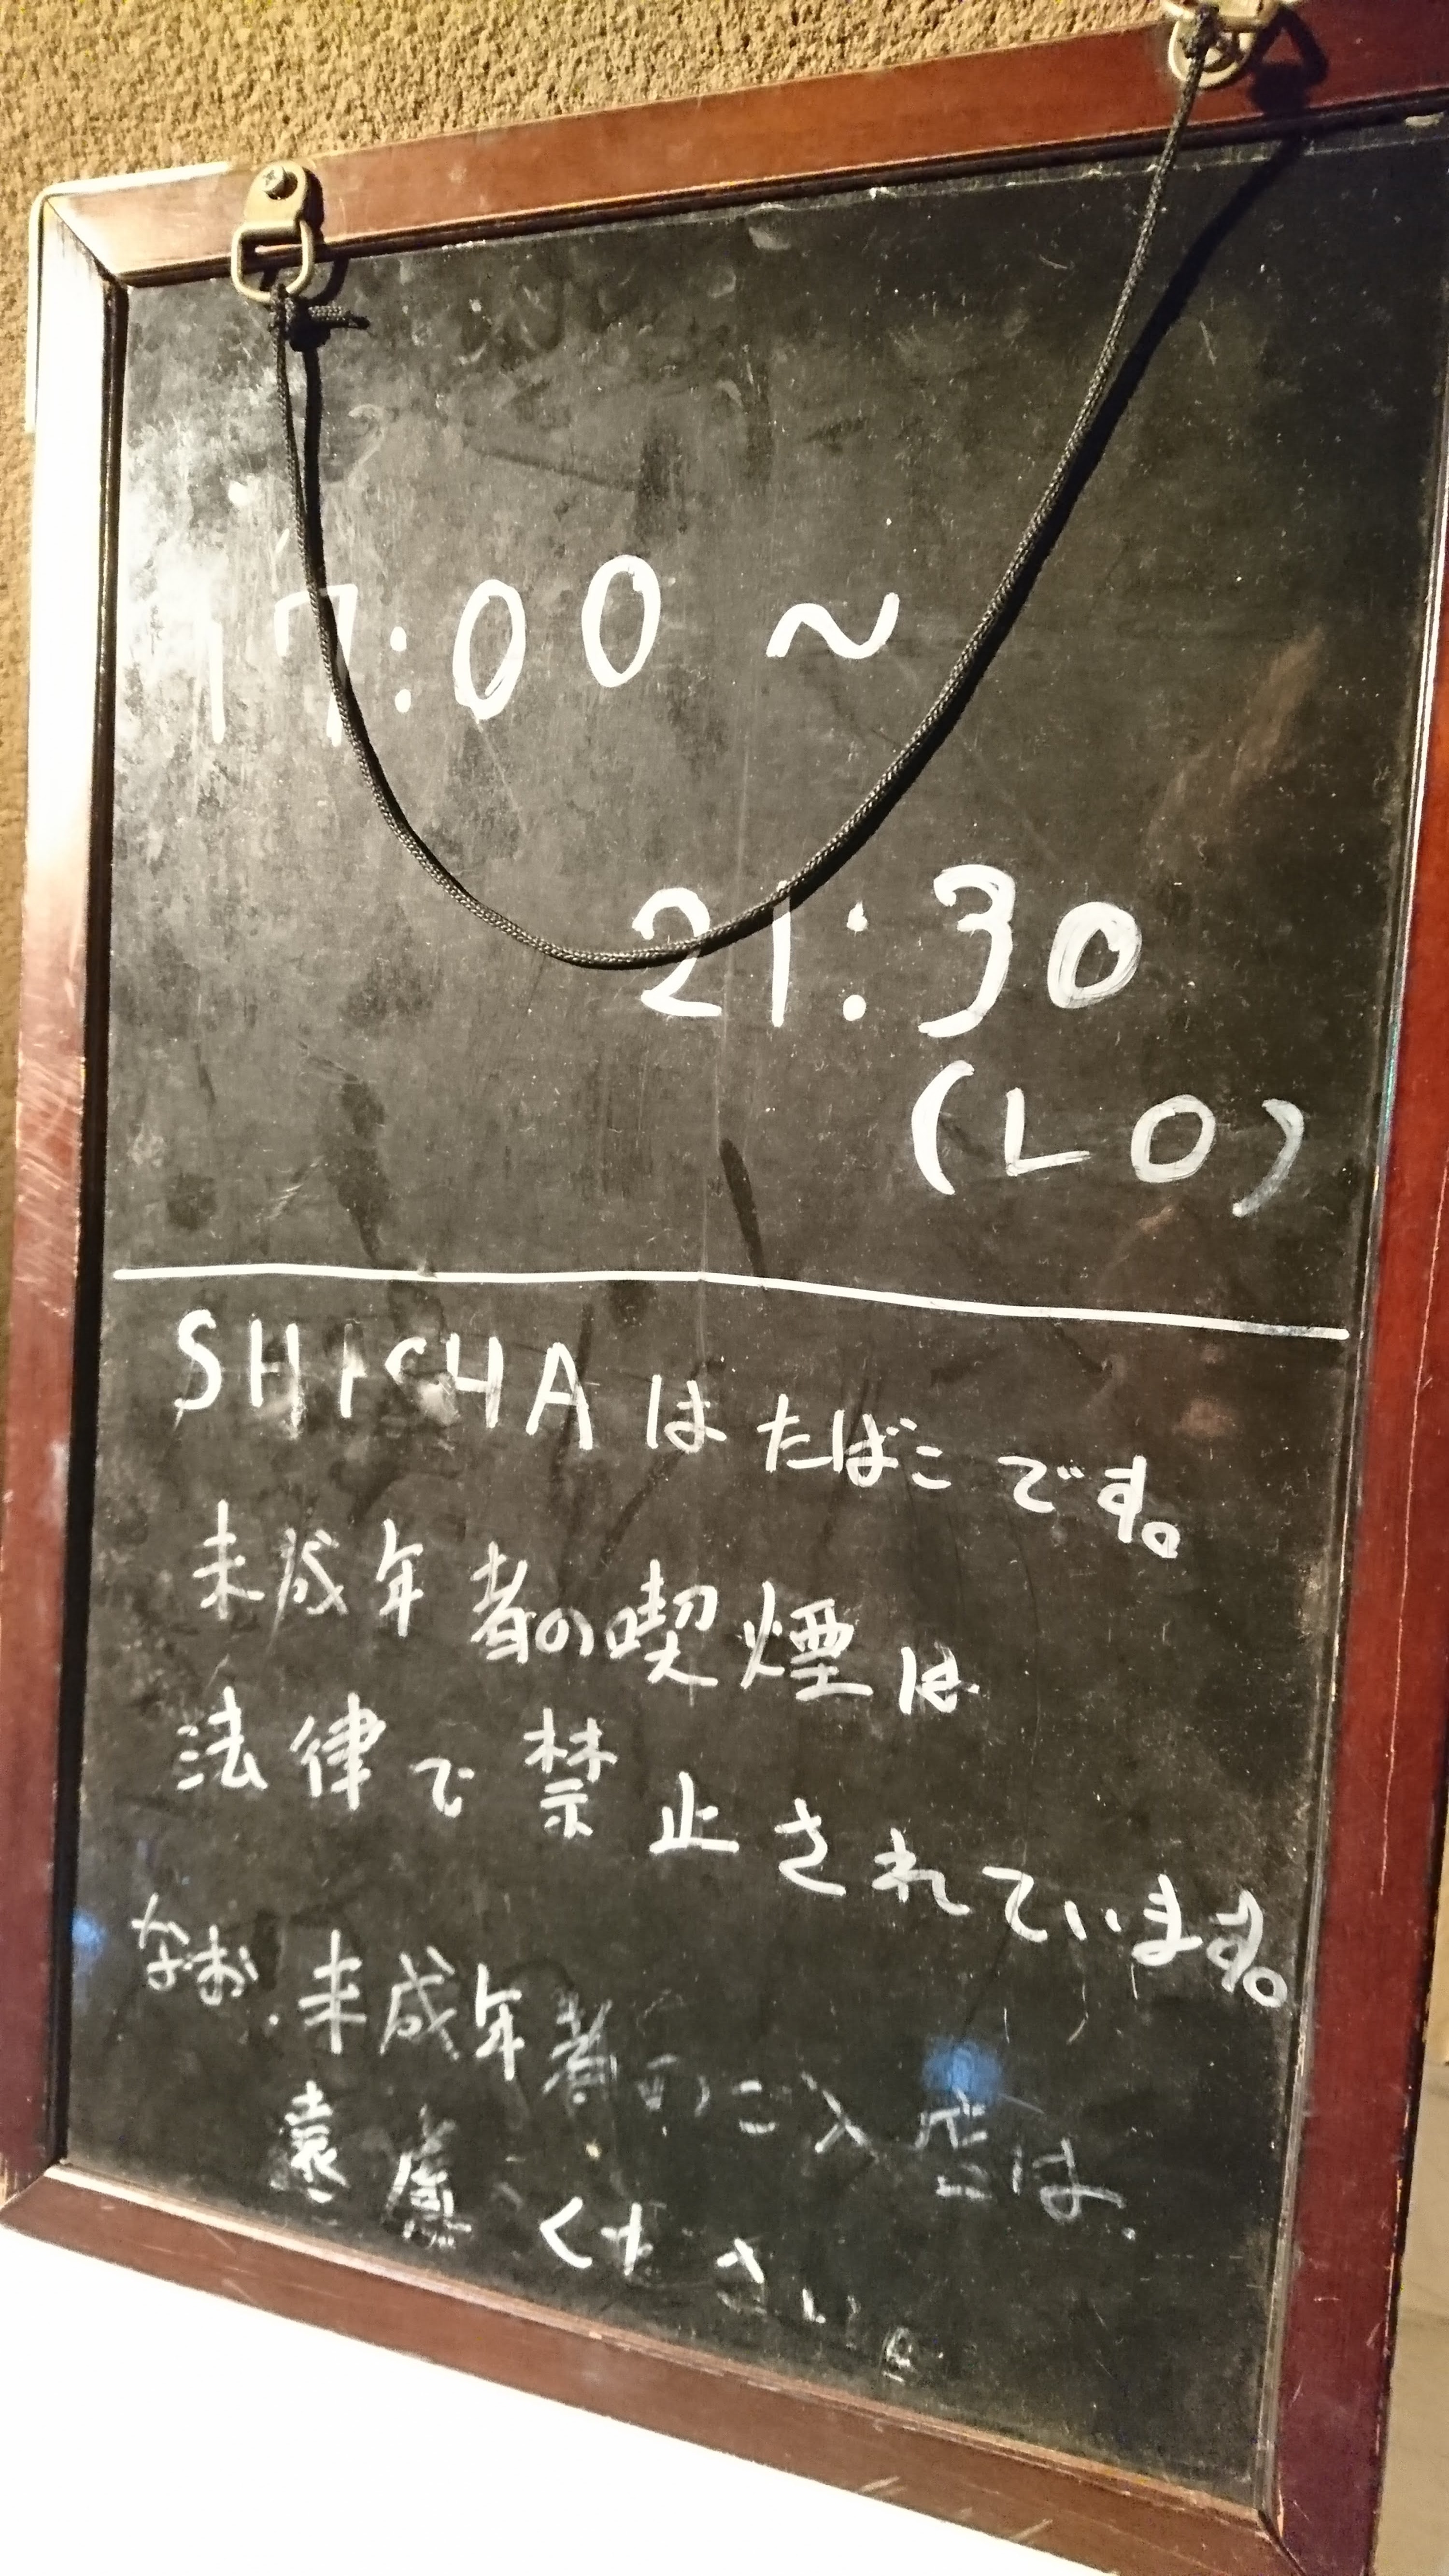 17:00 ~
21:30
(LO)
SHICHA は たばこ です。
未成年者の喫煙は
法律で禁止されています。
なお、未成年者のご入店は、
遠慮ください。